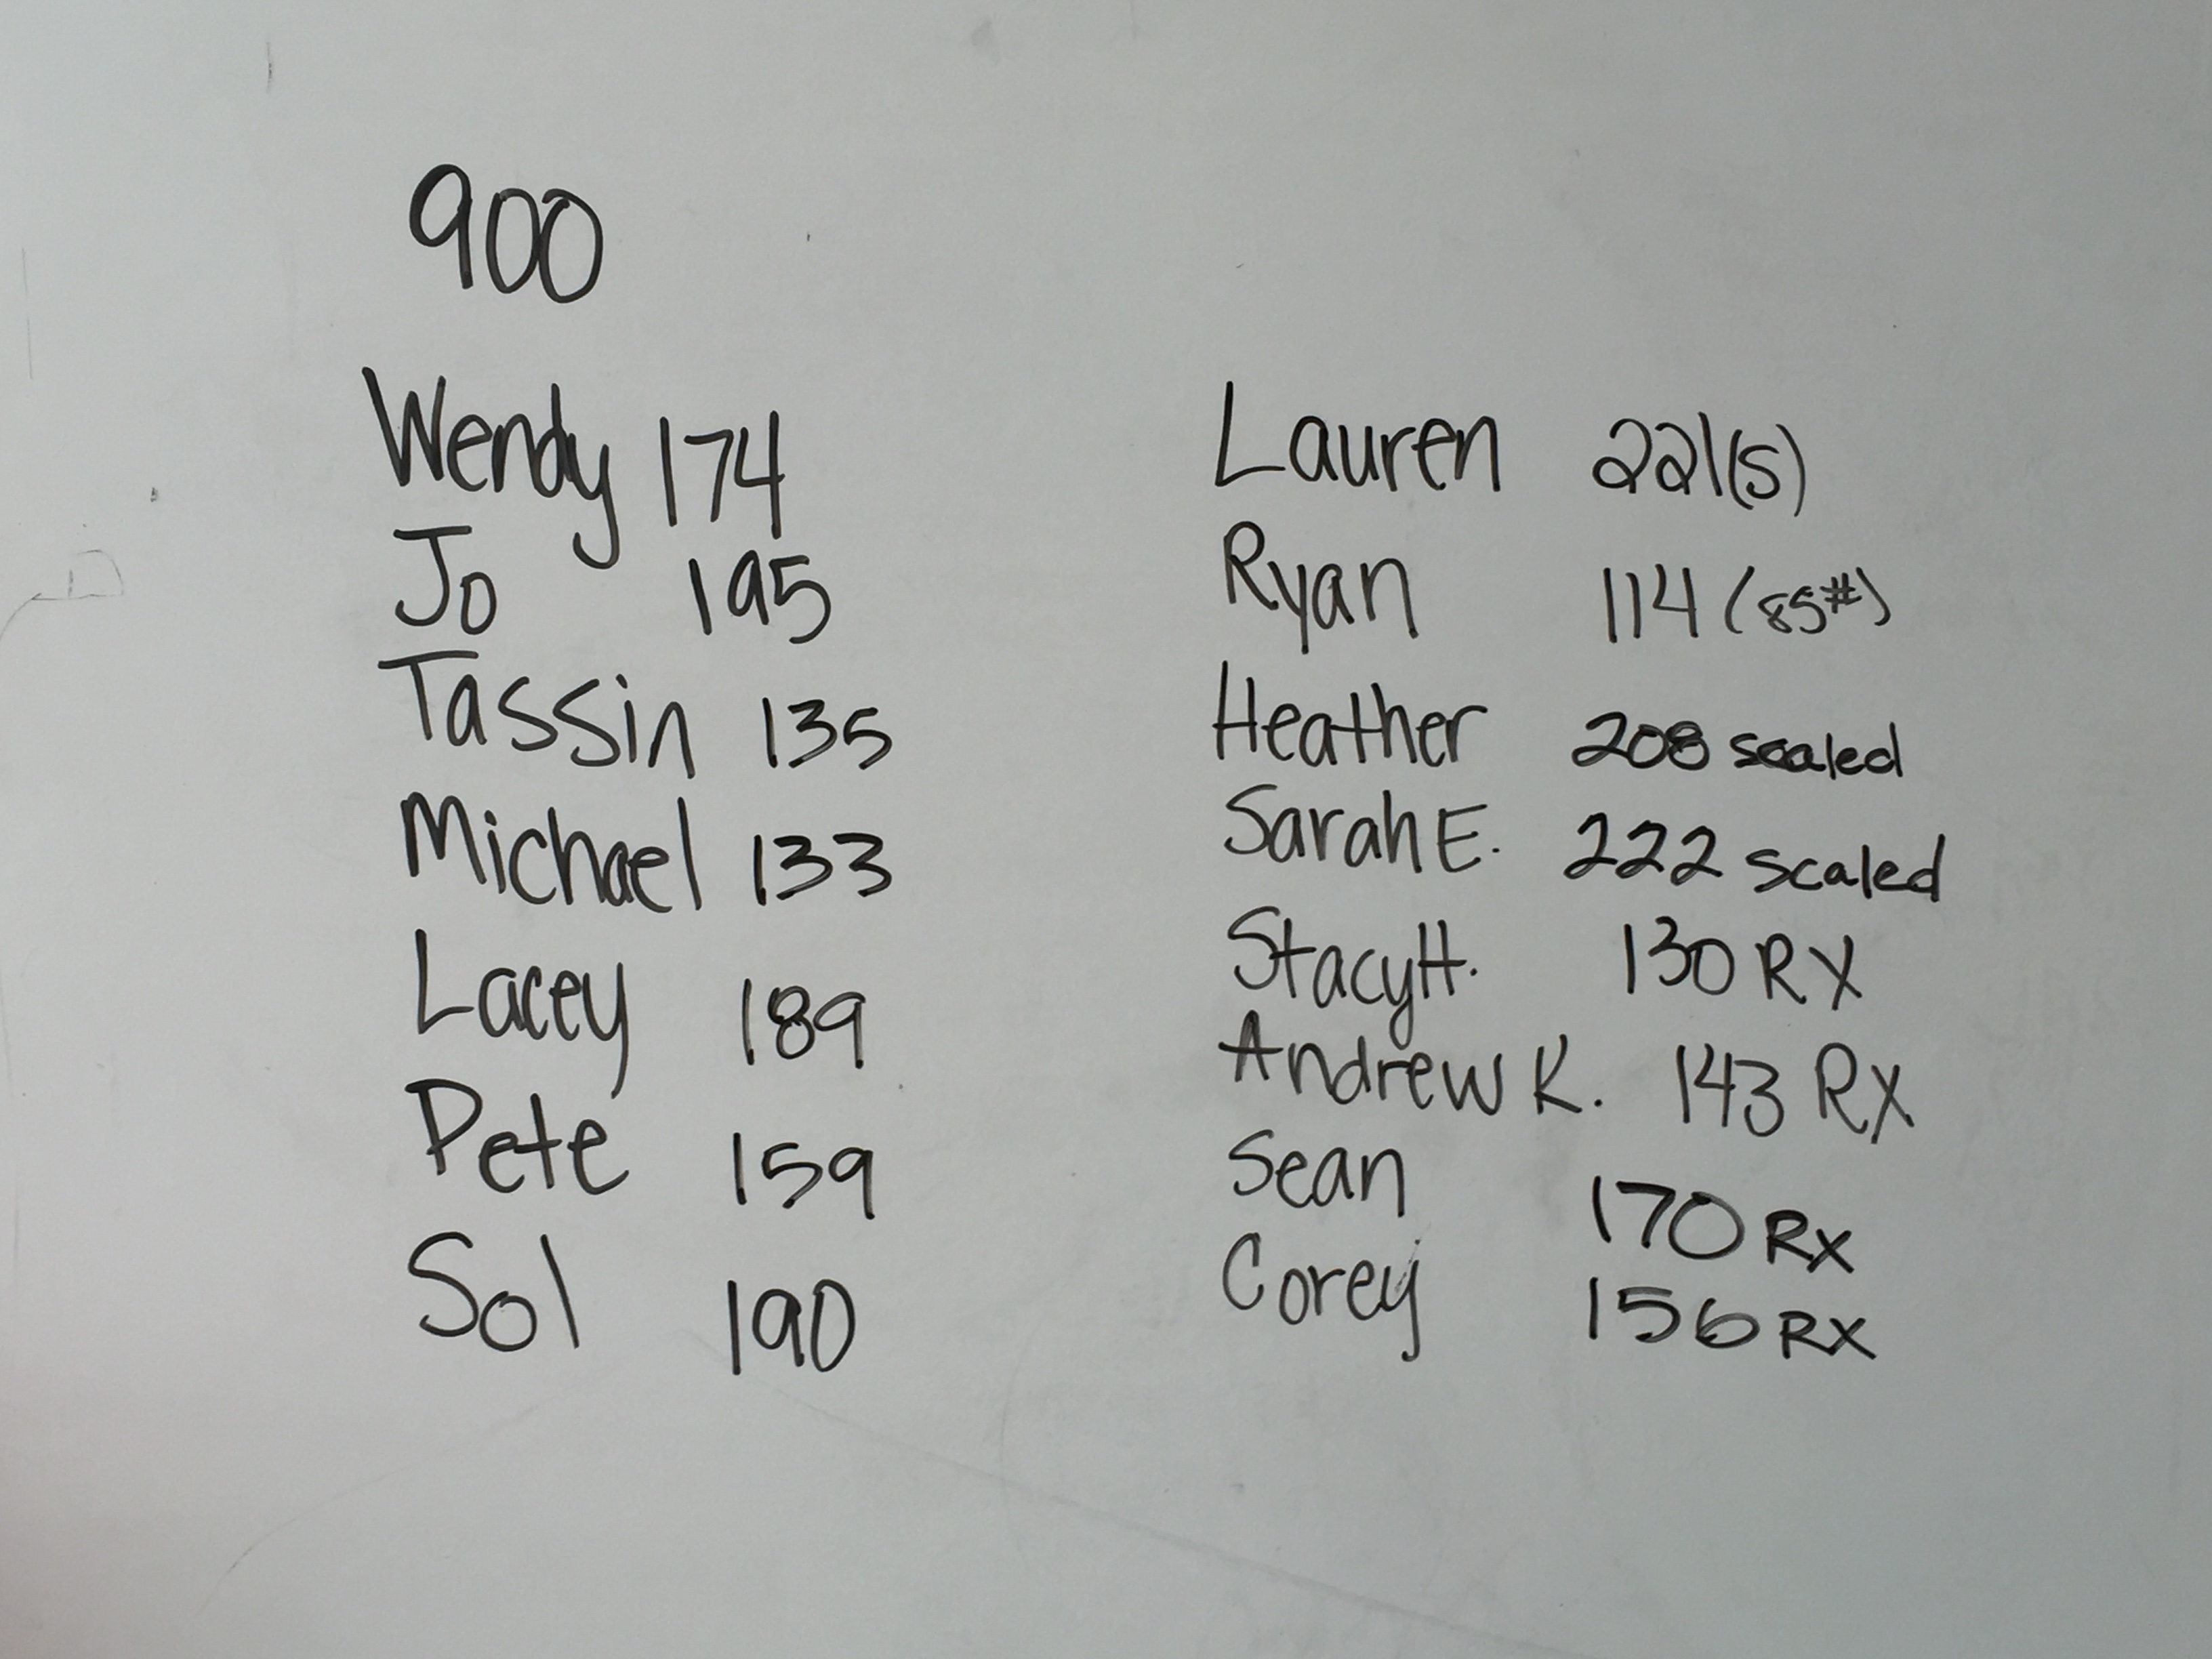 900
Wendy 174
Jo 195
Tassin 135
Michael 133
Lacey 189
Pete 159
Sol 190
Lauren 221(s)
Ryan 114 (85#)
Heather 208 scaled
Sarah E. 222 scaled
Stacy H. 130 RX
Andrew K. 143 RX
Sean 170 RX
Corey 156 RX